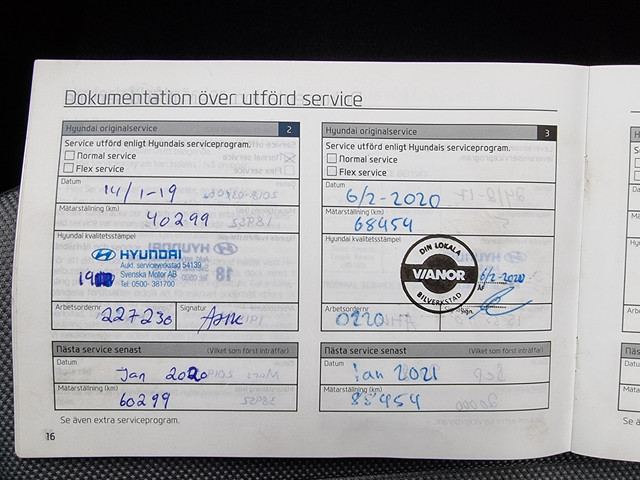 Dokumentation över utförd service
Hyundai originalservice 2
Service utförd enligt Hyundais serviceprogram.
Normal service
Flex service
Datum
14/1-19
Mätarställning (km)
40299
Hyundai kvalitetsstämpel
HYUNDAI
Aukt. serviceverkstad 54139
Svenska Motor AB
Tel: 0500- 381700
Arbetsordernr Signatur
227230
Nästa service senast (Vilket som först inträffar)
Datum
Jan 2020
Mätarställning (km)
60299
Se även extra serviceprogram.
16
Hyundai originalservice 3
Service utförd enligt Hyundais serviceprogram.
Normal service
Flex service
Datum
6/2-2020
Mätarställning (km)
68454
Hyundai kvalitetsstämpel
DIN LOKALA
VIANOR
BILVERKSTAD
6/2-2020
Arbetsordernr
0220
Nästa service senast (Vilket som först inträffar)
Datum
Jan 2021
Mätarställning (km)
Se även extra serviceprogram.